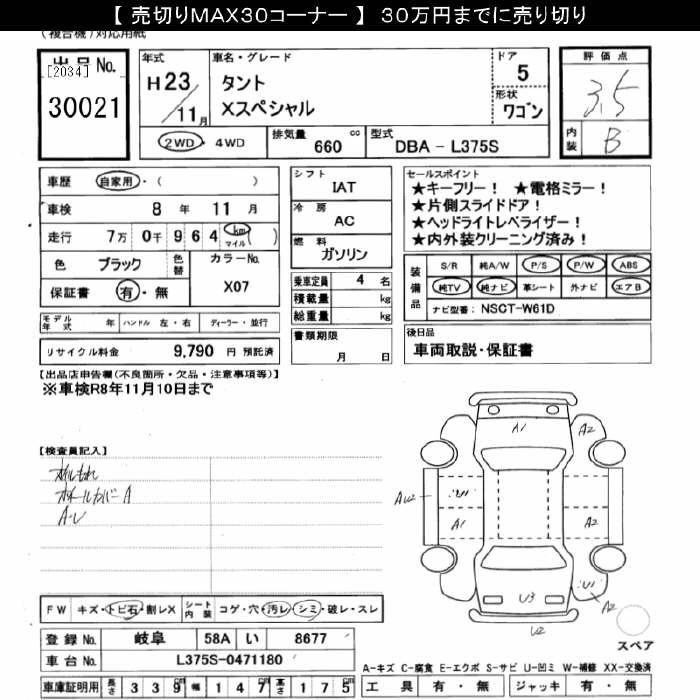 【 売切りMAX30コーナー 】 30万円までに売り切り
(複合機)対応用紙
出品No.
[2034]
30021
年式
H23/11月
車名・グレード
タント
Xスペシャル
ドア
5
形状
ワゴン
評価点
3.5
内装
B
2WD・4WD
排気量
660 cc
型式
DBA - L375S
車歴 自家用・( )
車検 8 年 11 月
走行 7万 0千 9 6 4 km マイル( )
色 ブラック 色替 カラーNo.
X07
保証書 有・無
モデル年式 年 ハンドル 左・右 ディーラー・並行
リサイクル料金 9,790 円 預託済
シフト
IAT
冷房
AC
燃料
ガソリン
乗車定員 4 名
積載量 kg
総重量 kg
書類期限
月 日
セールスポイント
★キーフリー！ ★電格ミラー！
★片側スライドドア！
★ヘッドライトレベライザー！
★内外装クリーニング済み！
装備品
S/R 純A/W P/S P/W ABS
純TV 純ナビ 革シート 外ナビ エアB
ナビ型番： NSCT-W61D
後日品
車両取説・保証書
【出品店申告欄(不良箇所・欠品・注意事項等)】
※車検R8年11月10日まで
【検査員記入】
オイルもれ
ホイールカバーA
A-U
A1
A2
AU2
U1
A1
A2
A2
U3
U1
A2
U2
スペア
FW キズ・トビ石・割レX シート内装 コゲ・穴・汚レ・シミ・破レ・スレ
登録No. 岐阜 58A い 8677
車台No. L375S-0471180
車庫証明用 長さ 3 3 9 cm 幅 1 4 7 cm 高さ 1 7 5 cm
A-キズ C-腐食 E-エクボ S-サビ U-凹ミ W-補修 XX-交換済
工具 有・無 ジャッキ 有・無